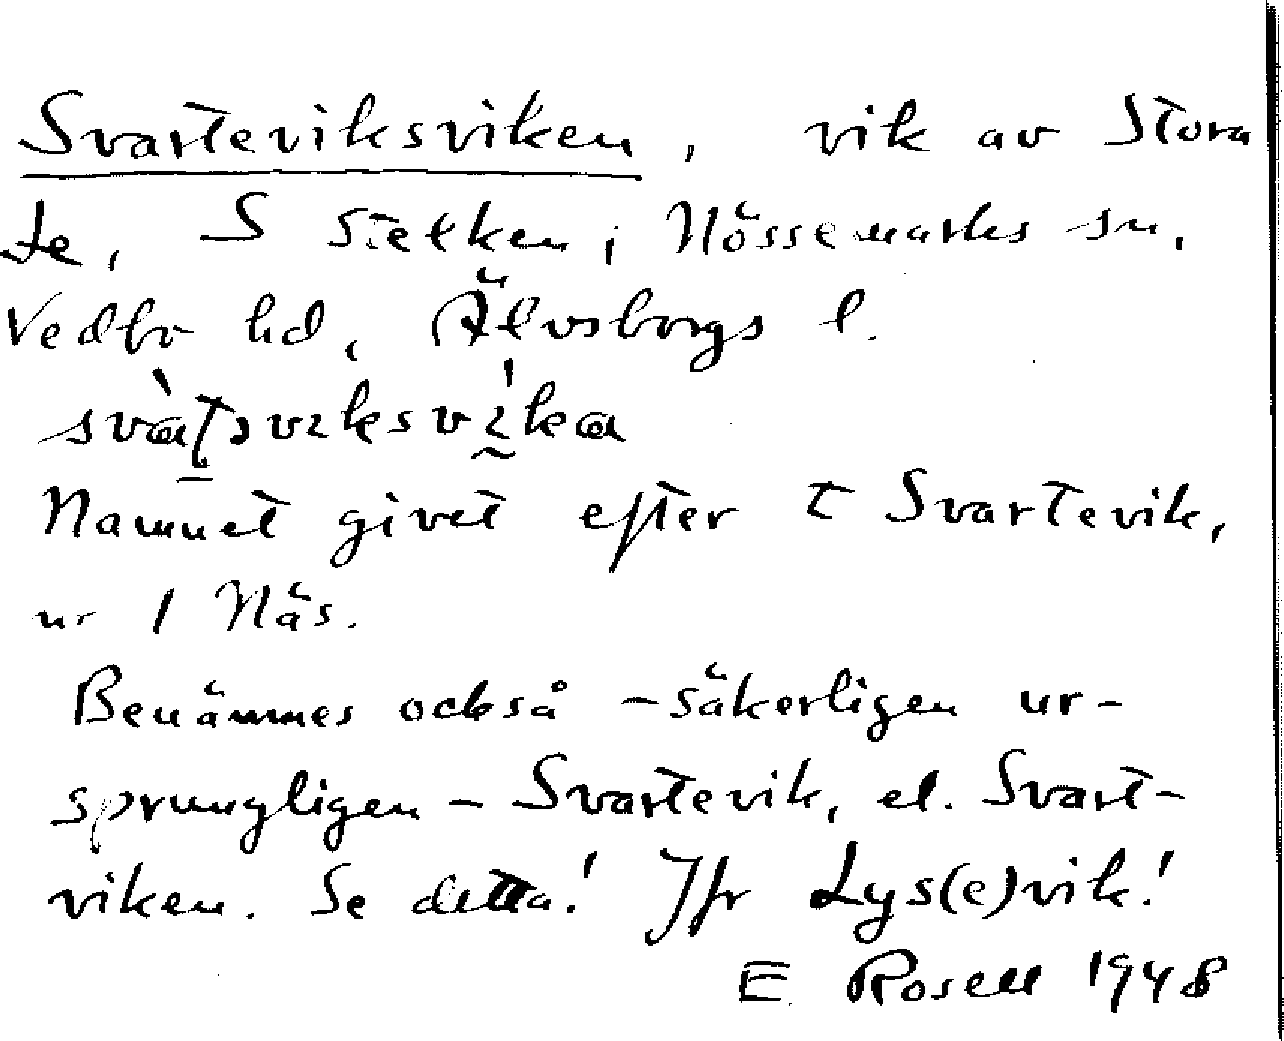 Svarteviksviken, vik av Stora
Le, S Sietken i Nössemarks sn,
Vedbo hd, Älvsborgs l.
Namnet givet efter t Svartevik,
nr 1 Näs.
Benämnes också - säkerligen ur-
sprungligen - Svartevik, el. Svart-
viken. Se detta! Jfr Lys(e)vik!
E. Rosell 1948